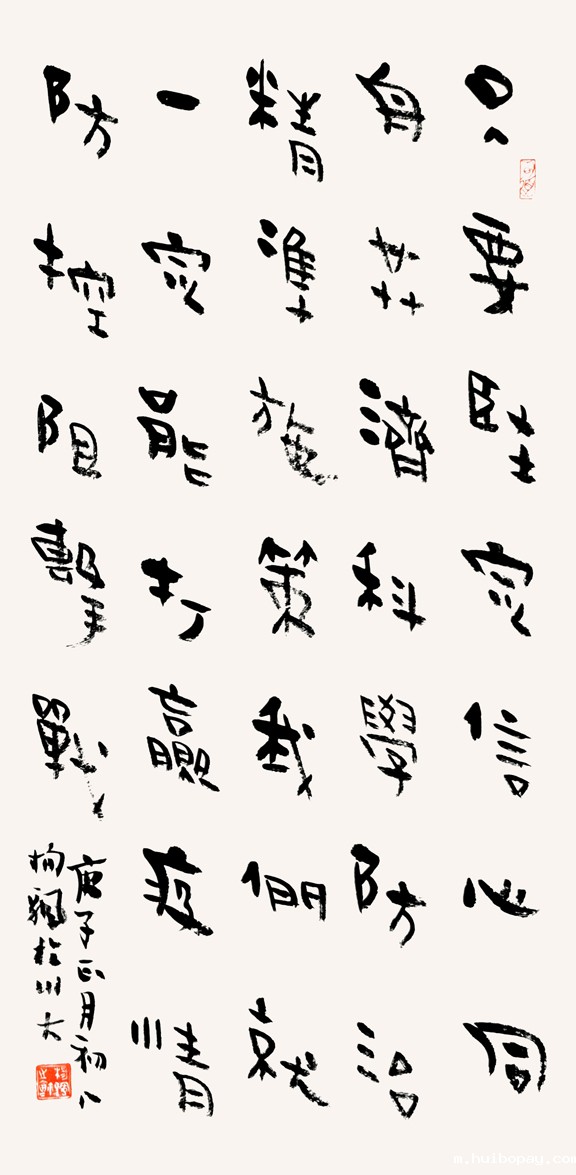 只要堅定信心同
舟共濟科學防治
精準施策我們就
一定能打贏疫情
防控阻擊戰
庚子正月初八
於川大
m.huibopay.com